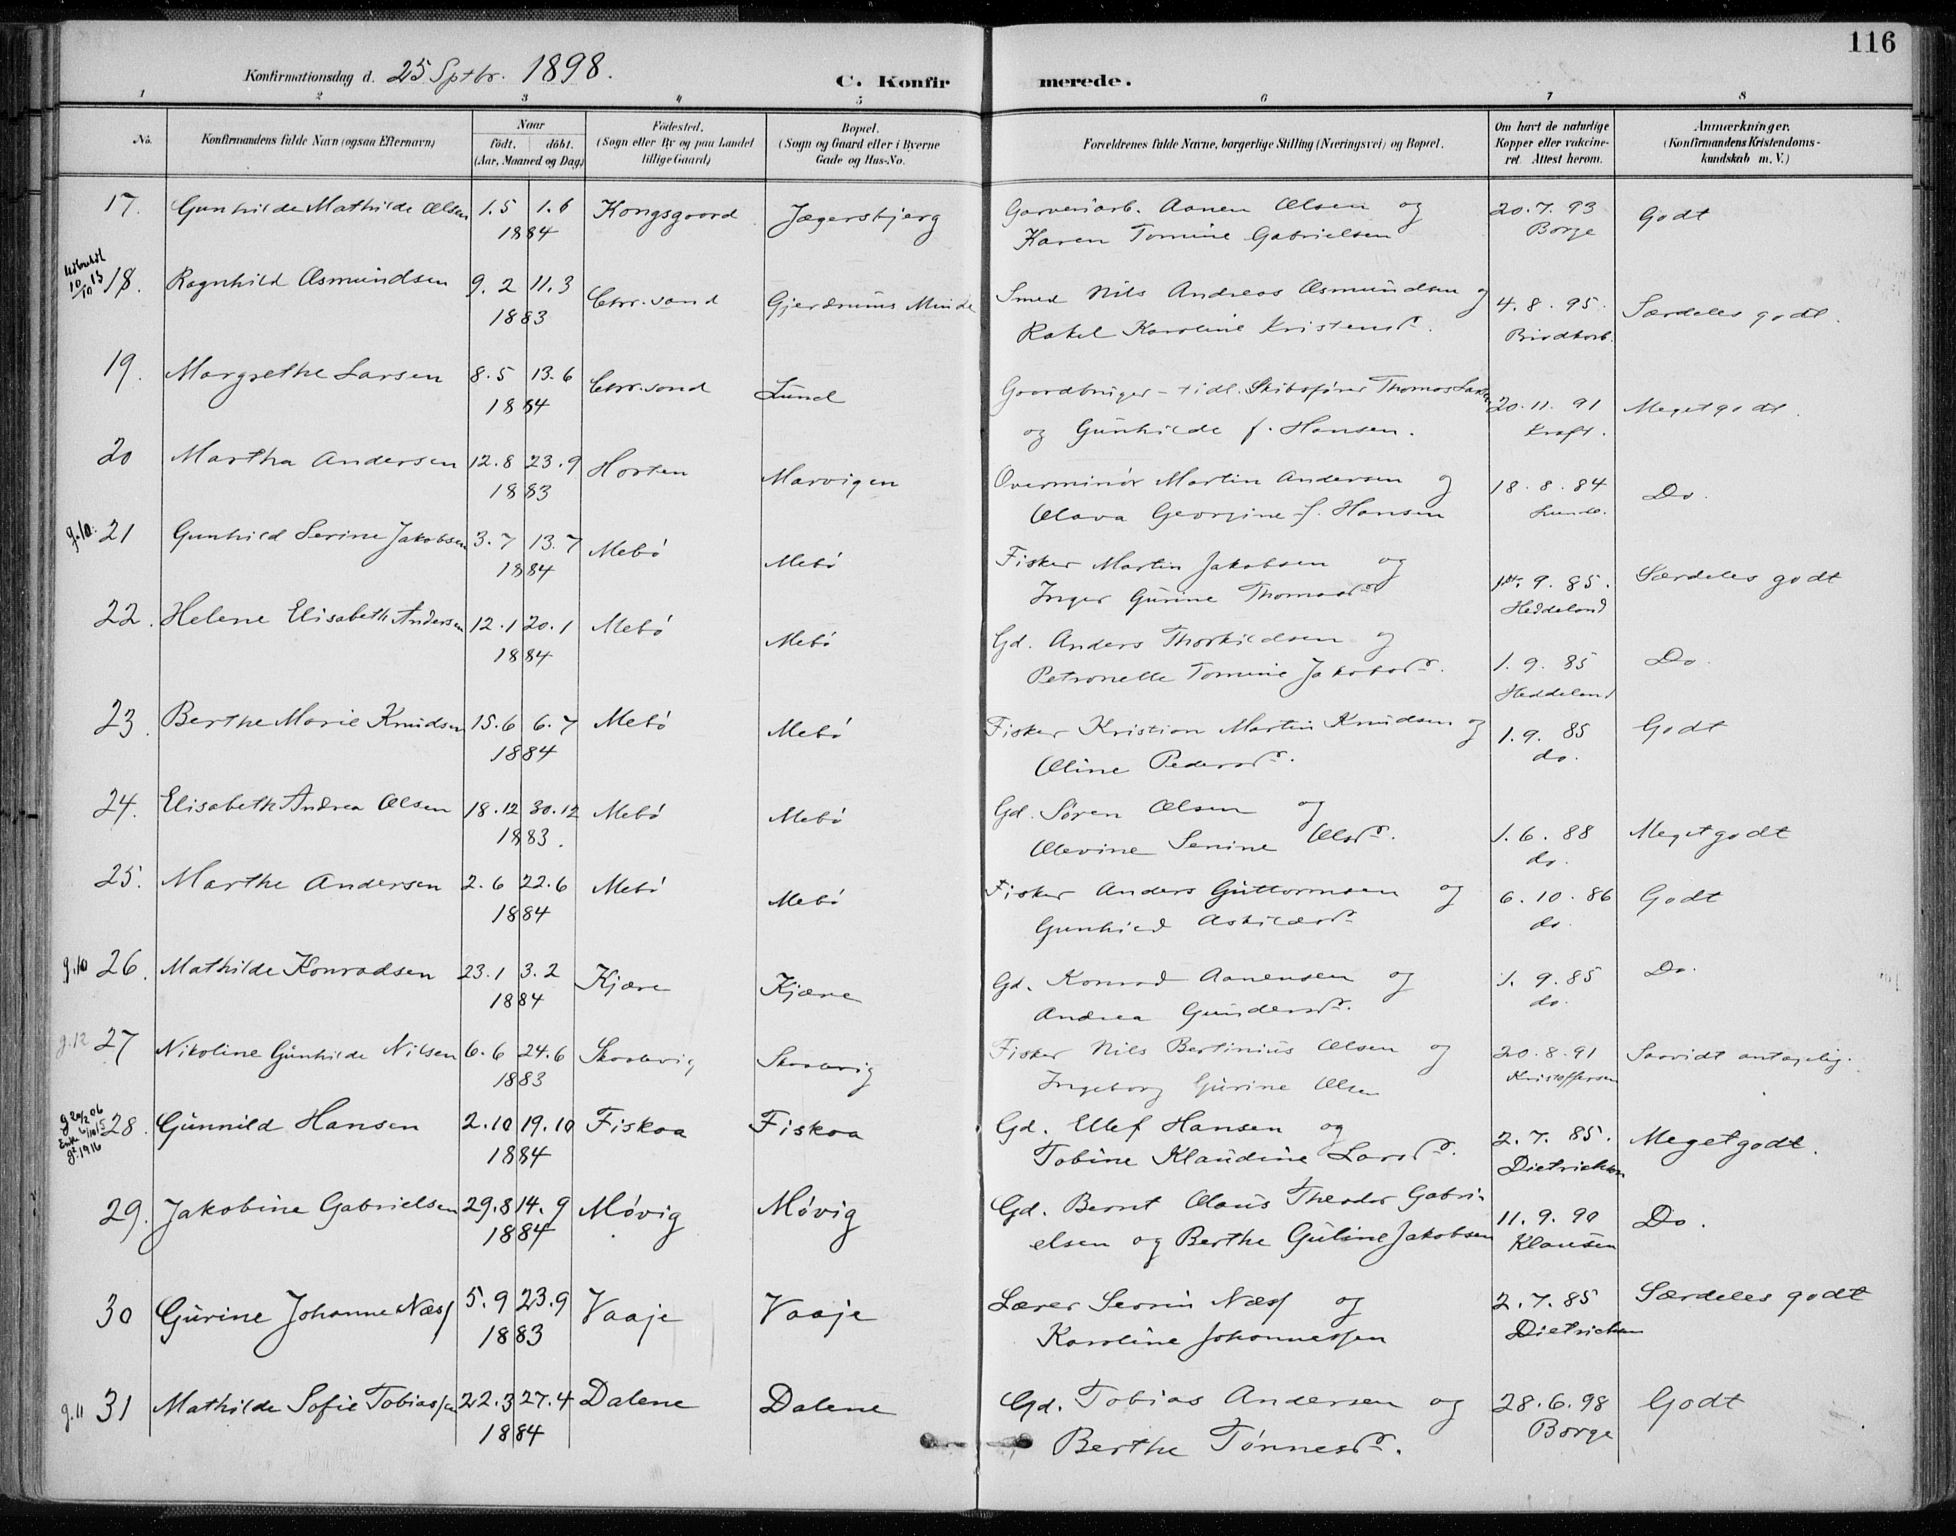 116
Konfirmationsdag d. 25 Sptbr. 1898.
C. Konfirmerede.
1 2 3 4 5 6 7 8
No.
Konfirmandens fulde Navn (ogsaa Efternavn)
Naar
født. døbt.
(Aar, Maaned og Dag)
Fødested.
(Sogn eller By og paa Landet
tillige Gaard)
Bopæl.
(Sogn og Gaard eller i Byerne
Gade og Hus-No.
Forældrenes fulde Navne, borgerlige Stilling (Næringsvei) og Bopæl.
Om havt de naturlige
Kopper eller vakcine-
ret. Attest herom.
Anmærkninger.
(Konfirmandens Kristendoms-
kundskab m. V.)
17. Gunhilde Mathilde Olsen 1.5 1.6 Kongsgaard Jægersbjerg Garveriarb. Aanen Olsen og 20.7.93 Godt
1884 Karen Tomine Gabrielsen Borge
10/10 13 18. Ragnhild Asmundsen 9.2 11.3 Chr.sand Gjerdrums Minde Smed Nils Andreas Asmundsen og 4.8.95. Særdeles godt.
1883 Rakel Karoline Kristensdr.
19. Margrethe Larsen 8.5 13.6 Chr.sand Lund Gaardbruger - tidl. Skibsfører Thomas Larsen 20.11.91 Meget godt.
1884 og Gunhilde f. Hansen. Kraft.
20 Martha Andersen 12.8 23.9 Horten Marvigen Overminør Martin Andersen og 18.8.84 Do.
1883 Olava Georgine f. Hansen
g.10: 21 Gunhild Serine Jakobsen 3.7 13.7 Mebø Mebø Fisker Martin Jakobsen og 9.85. Særdeles godt
1884 Inger Gurine Thomasdr Heddeland
22. Helene Elisabeth Andersen 12.1 20.1 Mebø Mebø Gd. Anders Thorkildsen og 1.9.85 Do.
1884 Petronelle Tomine Jakobsdr. Heddeland
23. Berthe Marie Knudsen 15.6 6.7 Mebø Mebø Fisker Kristian Martin Knudsen og 1.9.85 Godt
1884 Oline Pedersdr. do.
24. Elisabeth Andrea Olsen 18.12 30.12 Mebø Mebø Gd. Søren Olsen og 1.6.88 Meget godt
1883. Olevine Serine Olsdr. do.
25. Marthe Andersen 2.6 22.6 Mebø Mebø Fisker Anders Guttormsen og 6.10.86 Godt
1884 Gunhild Askildsdr do.
g.10 26. Mathilde Konradsen 23.1 3.2 Kjære Kjære Gd. Konrad Aanensen og 1.9.85 Do.
1884 Andrea Gundersdr. do.
g.12 27 Nikoline Gunhilde Nilsen 6.6 24.6 Skaalevig Skaalevig Fisker Nils Bertinius Olsen og 20.8.91 Saavidt antagelig.
1883 Ingeborg Gurine Olsen Kristoffersen
g 20/2 06 28. Gunnild Hansen 2.10 19.10 Fiskaa Fiskaa Gd. Ellef Hansen og 2.7.85. Meget godt.
g. 1916 1884 Tobine Klaudine Larsdr. Dietrichson
29. Jakobine Gabrielsen 29.8 14.9 Møvig Møvig Gd. Bernt Olaus Theodor Gabri- 11.9.90 Do.
1884 elsen og Berthe Guline Jakobsen Klausen
30 Gurine Johanne Næss 5.9 23.9 Vaaje Vaaje Lærer Severin Næss og 2.7.85 Særdeles godt
1883 Karoline Johannessen Dietrichson
g.11 31 Mathilde Sofie Tobiassen 22.3 27.4 Dalene Dalene Gd. Tobias Andersen og 28.6.98 Godt
1884 Berthe Tønnesdr. Borge